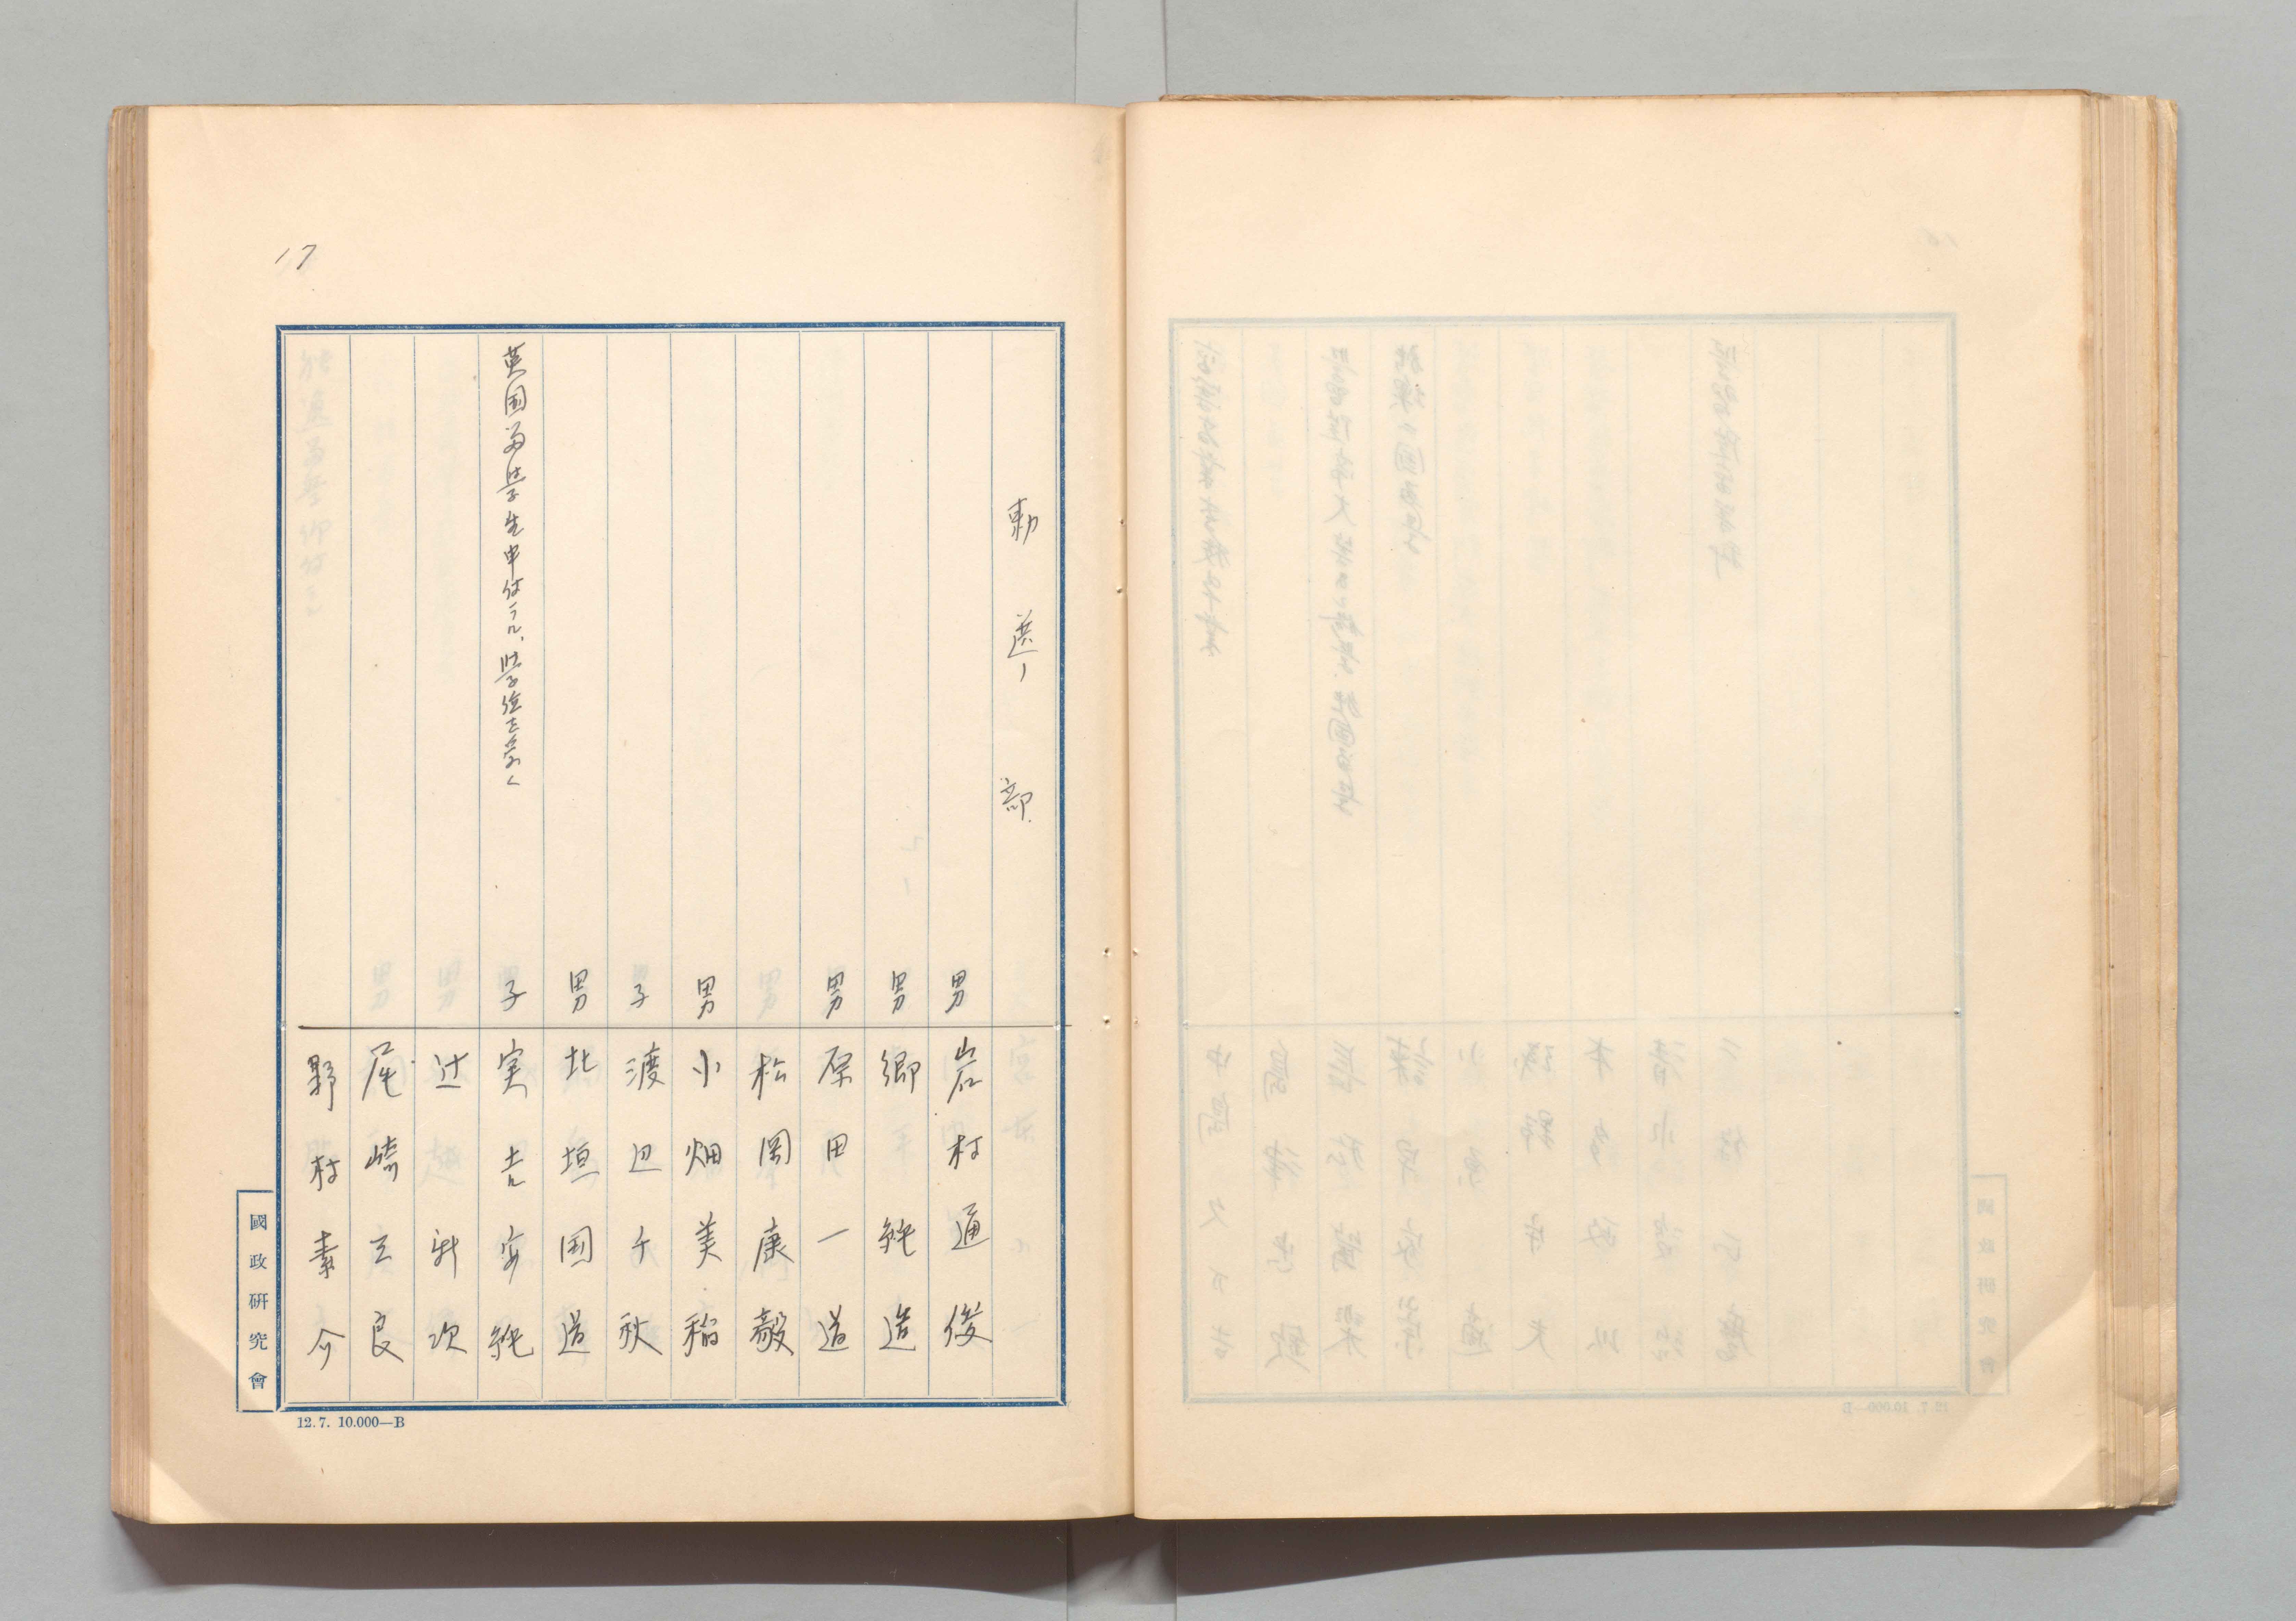 17
勅選ノ部
男 岩村通俊
男 郷純造
男 原田一道
松岡康毅
男 小畑美稲
子 渡辺千秋
男 北垣国道
英国留学生申付ラル、学位を受く 子 実吉安純
辻新次
尾崎三良
野村素介
國政研究會
12.7. 10.000—B